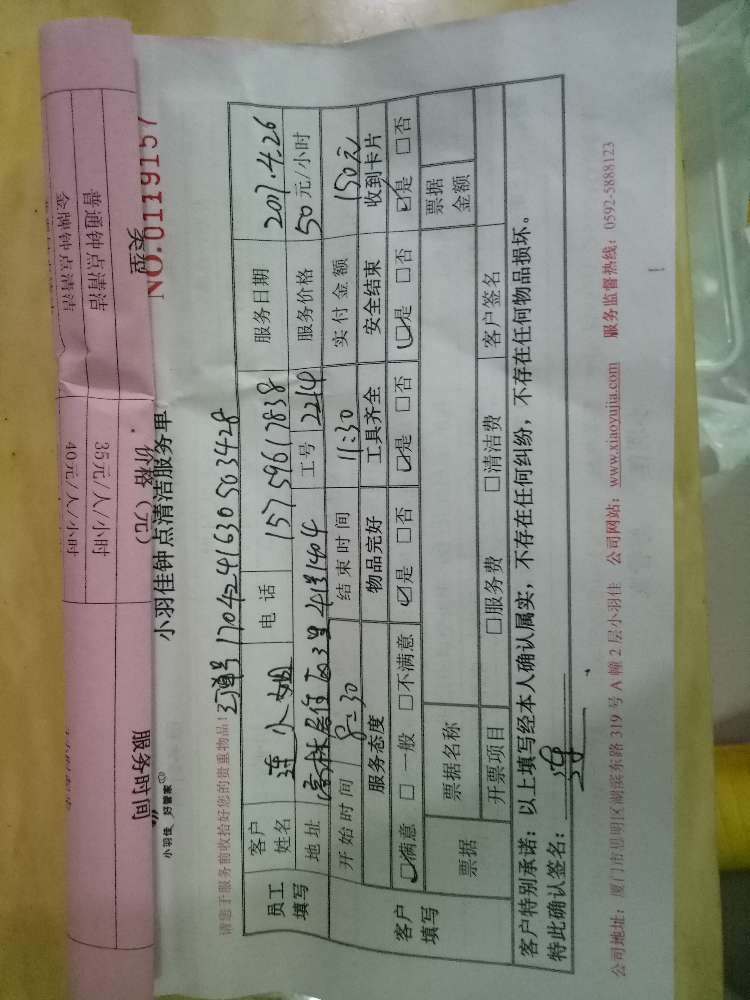 普通钟点清洁 35元/人/小时
金牌钟点清洁 40元/人/小时
类型 价格(元) 服务时间
NO.0119157
小羽佳 好管家
小羽佳钟点清洁服务单
请您于服务前收拾好您的贵重物品!
订单号 170424163050 3428
员工填写
客户姓名 连小姐 电话 15759617838 服务日期 2017.4.26
地址 工号 2214 服务价格 50元/小时
开始时间 8:30 结束时间 11:30 实付金额 150元
客户填写
服务态度 物品完好 工具齐全 安全结束 收到卡片
☑满意 □一般 □不满意 ☑是 □否 ☑是 □否 ☑是 □否 ☑是 □否
票据 票据名称 票据金额
开票项目 □服务费 □清洁费 客户签名
客户特别承诺:以上填写经本人确认属实,不存在任何纠纷,不存在任何物品损坏。
特此确认签名:
公司地址:厦门市思明区湖滨东路319号A幢2层小羽佳 公司网站:www.xiaoyujia.com 服务监督热线:0592-5888123